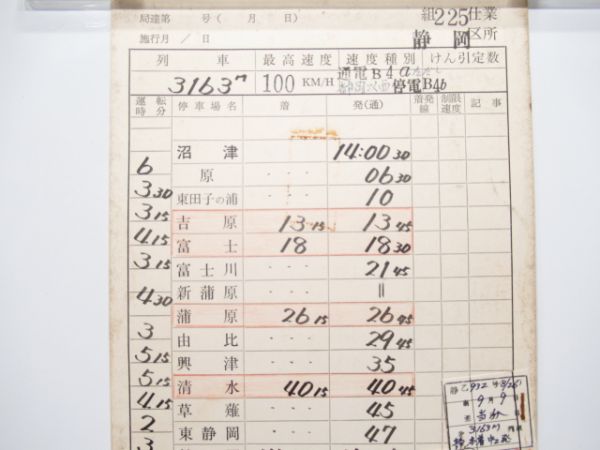 局達第 号( 月 日) 組225仕業
施行月 / 日 静岡区所
列車 最高速度 速度種別 けん引定数
3163M 100 KM/H 通電B4a 停電B4b
運転時分 停車場名 着 発(通) 着発線 制限速度 記事
沼津 14:00 30
6
原 ・・・ 06 30
3 30
東田子の浦 ・・・ 10
3 15
吉原 13 15 13 45
4 15
富士 18 18 30
3 15
富士川 ・・・ 21 45
新蒲原 ・・・ 〃
4 30
蒲原 26 15 26 45
3
由比 ・・・ 29 45
5 15
興津 ・・・ 35
5 15
清水 40 15 40 45
4 15
草薙 ・・・ 45
2
東静岡 ・・・ 47
3
9月9日
3163M